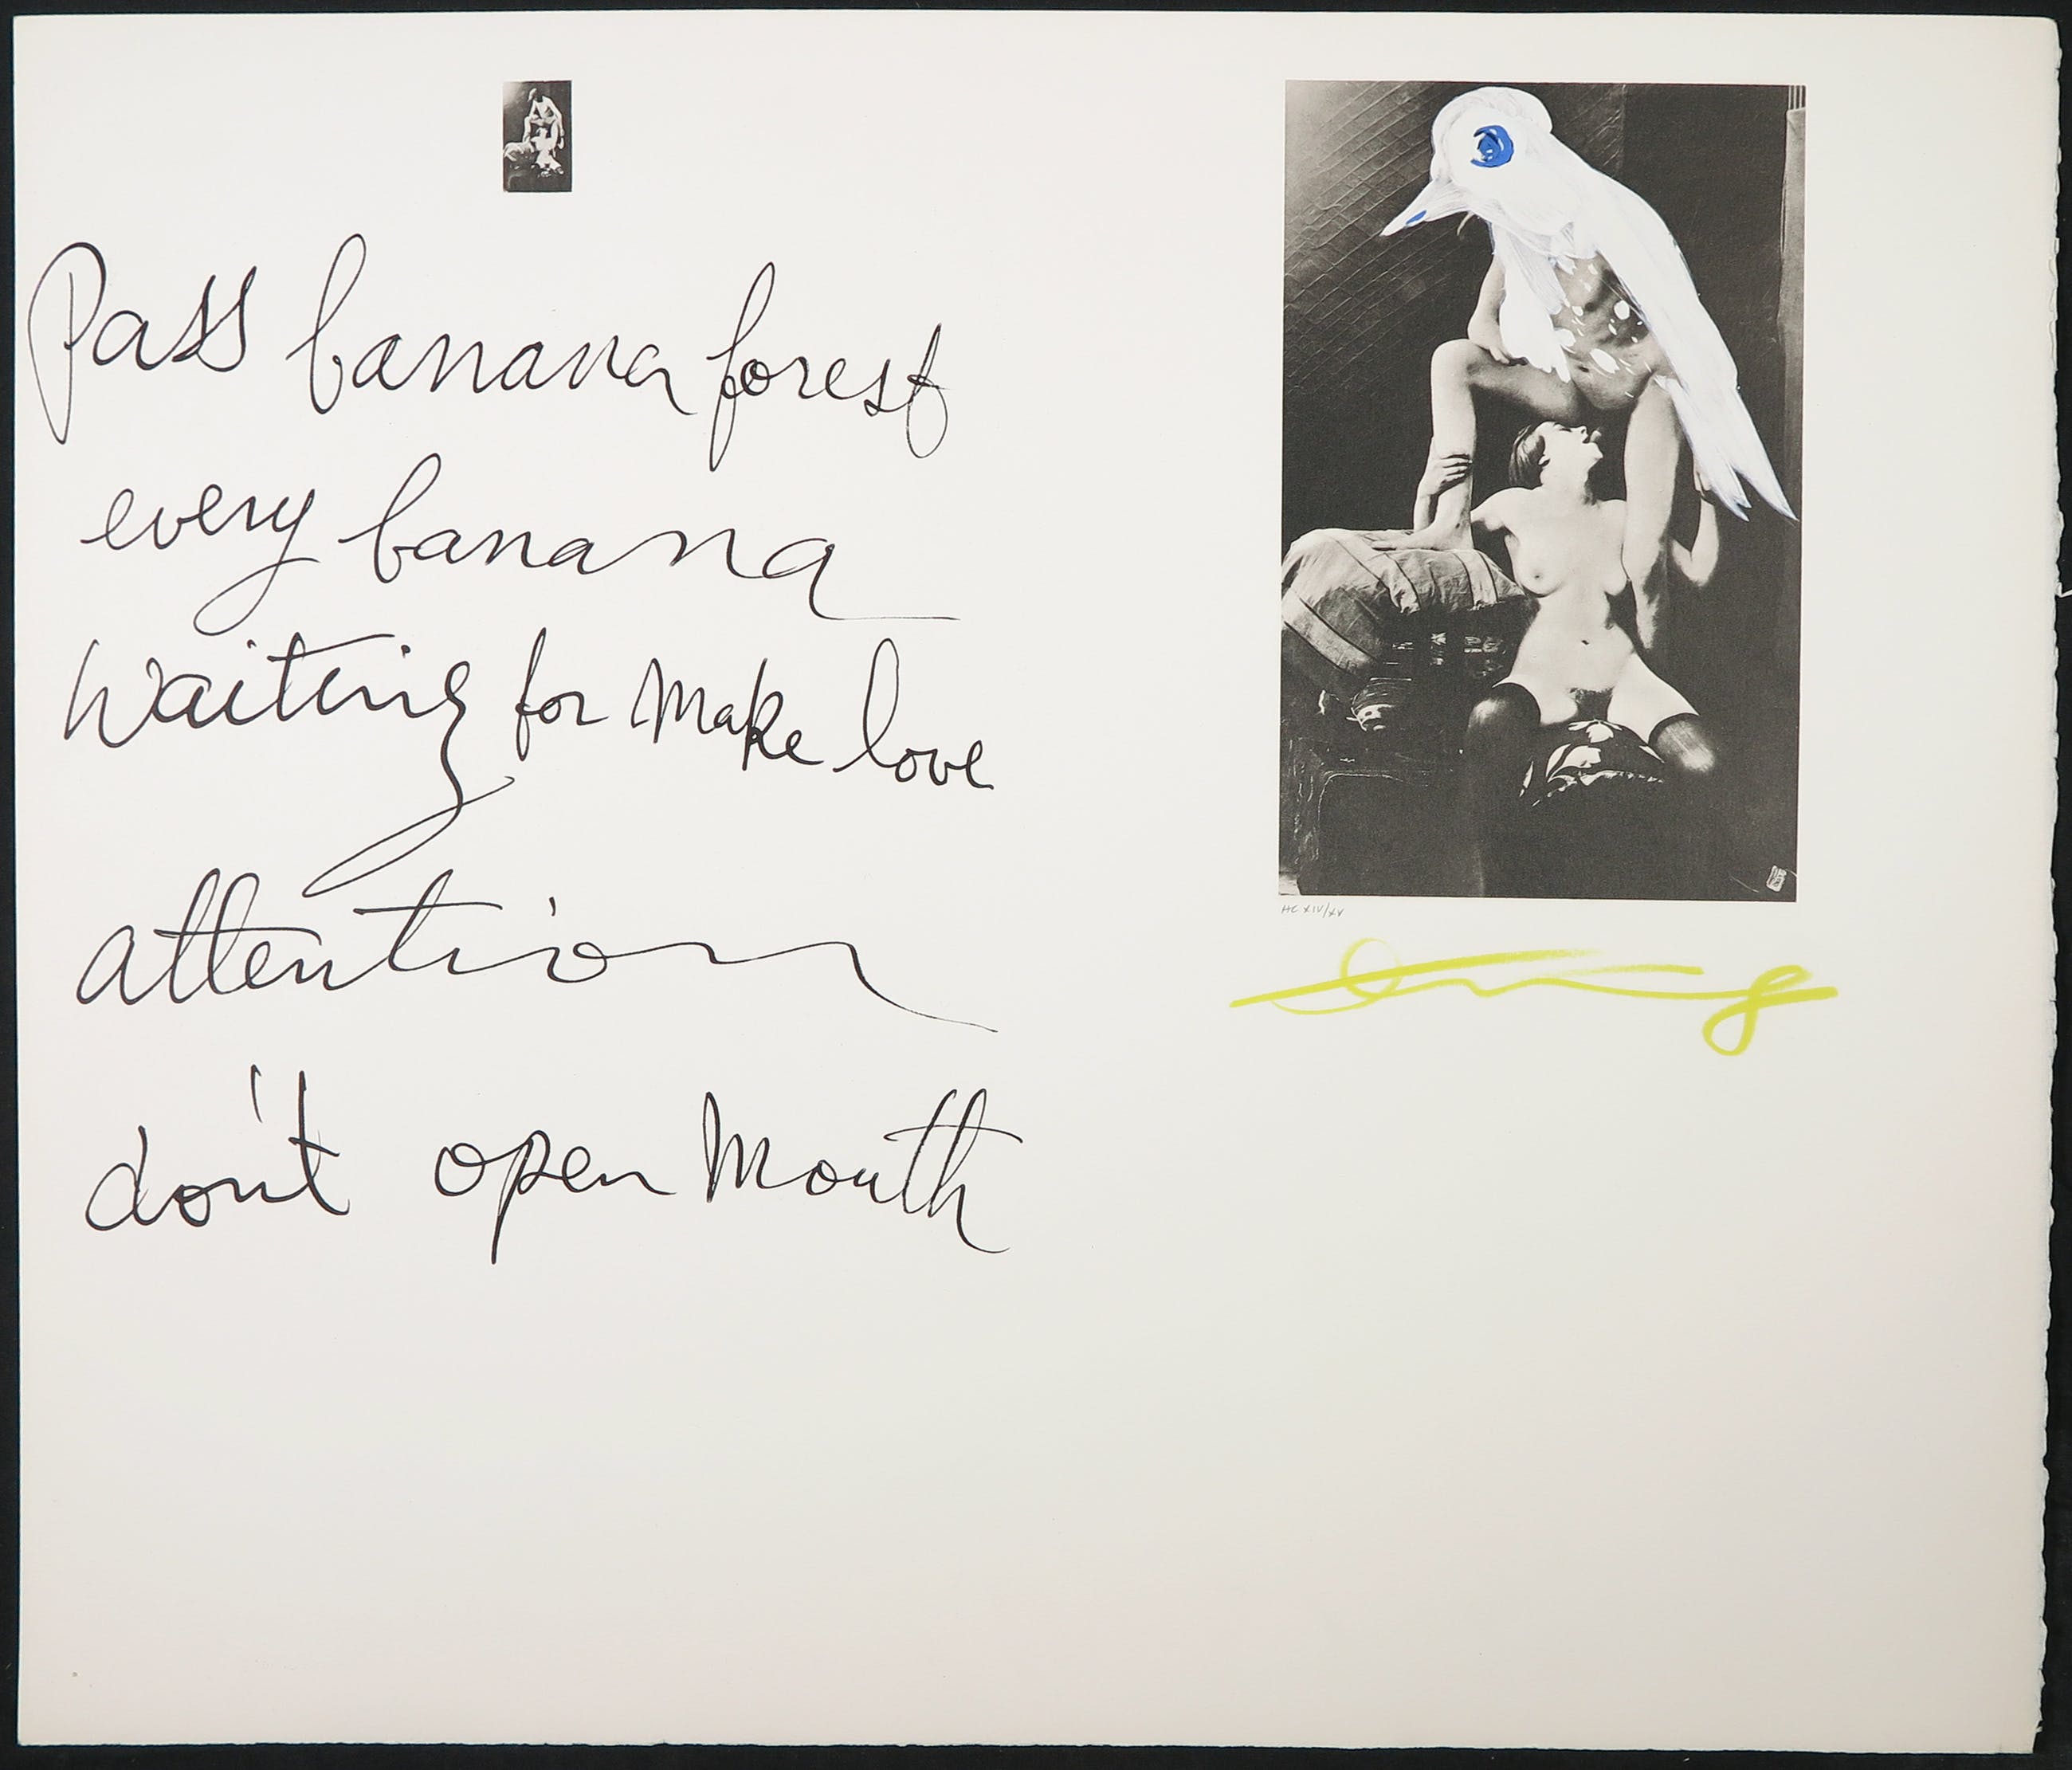 Pass banana forest
every banana
Waiting for Make love
attention
don't open Mouth
HC XIV/XV